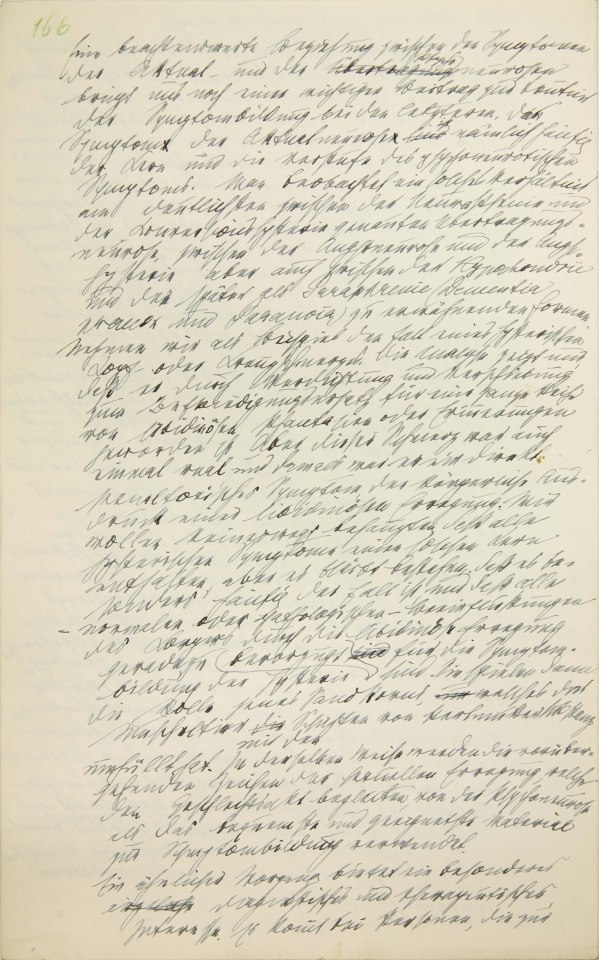 166
Eine beachtenswerte Beziehung zwischen den Symptomen
der Aktual- und der Psychoneurosen
bringt uns noch einen wichtigen Beitrag zur Kenntnis
der Symptombildung bei den letzteren. Das
Symptom der Aktualneurose ist nämlich häufig
der Kern und die Vorstufe des psychoneurotischen
Symptoms. Man beobachtet ein solches Verhältnis
am deutlichsten zwischen der Neurasthenie und
der Conversionshysterie genannten Übertragungs-
neurose, zwischen der Angstneurose und der Angst-
hysterie aber auch zwischen der Hypochondrie
und den später als Paraphrenie (Dementia
praecox und Paranoia) zu erwähnenden Formen.
Nehmen wir als Beispiel den Fall eines hysterischen
Kopf- oder Kreuzschmerzes. Die Analyse zeigt uns,
daß er durch Verdichtung und Verschiebung
zum Befriedigungsersatz für eine ganze Reihe
von libidinösen Phantasien oder Erinnerungen
geworden ist. Aber dieser Schmerz war auch
einmal real und damals war er ein direkt
sexualtoxisches Symptom, der körperliche Aus-
druck einer libidinösen Erregung. Wir
wollen keineswegs behaupten, daß alle
hysterischen Symptome einen solchen Kern
enthalten, aber es bleibt bestehen, daß es be-
sonders häufig der Fall ist und daß alle
normalen oder pathologischen - Beeinflussungen
des Körpers durch die libidinöse Erregung
geradezu bevorzugt für die Symptom-
bildung der Hysterie sind. Sie spielen dann
die Rolle jenes Sandkorns, welches das
Muscheltier mit den Schichten von Perlmuttersubstanz
umhüllt hat. In derselben Weise werden die vorüber-
gehenden Zeichen der sexuellen Erregung, welche
den Geschlechtsakt begleiten von der Psychoneurose
als das bequemste und geeignetste Material
zur Symptombildung verwendet.
Ein ähnlicher Vorgang bietet ein besonderes
diagnostisches und therapeutisches
Interesse. Es kommt bei Personen, die zur